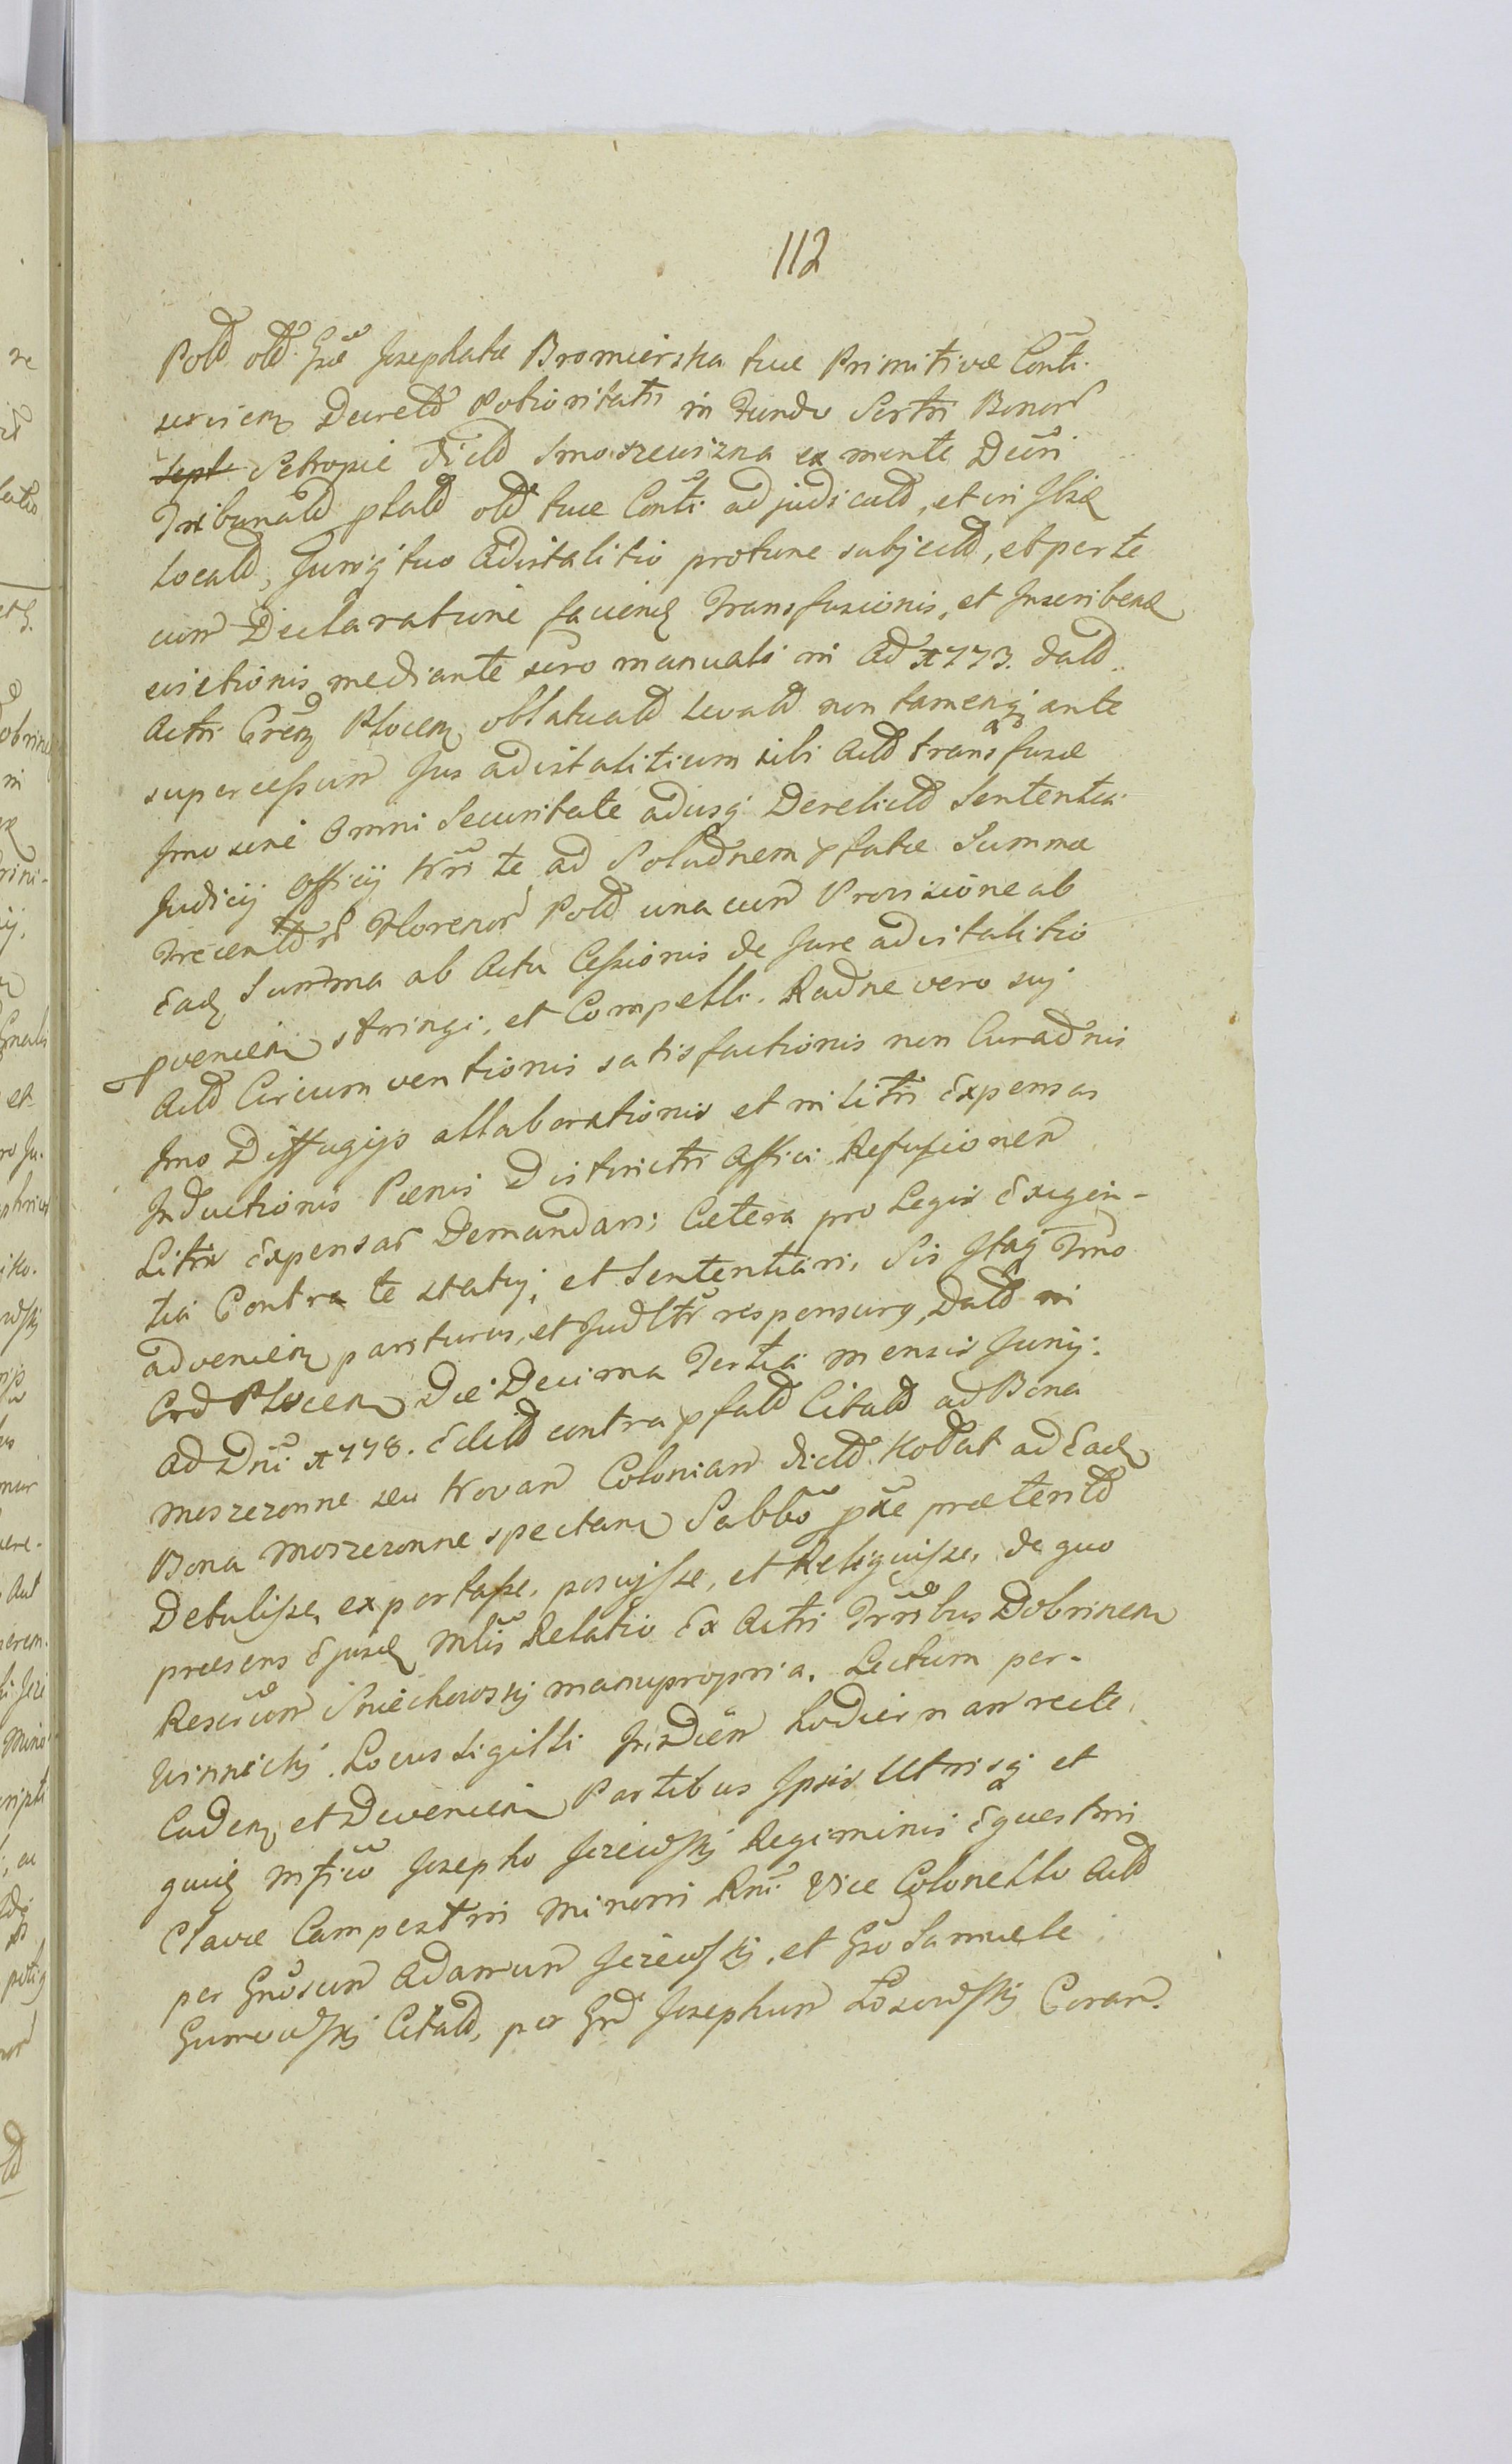 112
Pold. old. Gsae Josephatae Bromierska tuae Primitivae Conti.
servien Decreto Potioritatis in Fundo Sortis Bonor
Sept. Setropie dicto Smoszewizna ex mente Decri
Tribunald ptald old tuae Conti adjudicatd, et in Ibid
Locatd, Jurisq tuo Advitalitio protunc subjectd, et per te
cum Declaratione faciend Transfusionis, et Inscribend
evictionis mediante scro manuali in Ao 1773. datd
Actis Gren Plocen oblatuatd Levatd non tamenq ante
supercessum Jus advitalitium sibi Actd transfusae
Imo sine Omni Securitate adusq Derelictd Sententia
Judicij Officij Nri te ad Soludnem pfatae Summae
Trecentd Florenor Pold una cum Provisione ab
Ead Summa ab Actu Cessionis de Jure advitalitio
pvenien stringi, et Compelli. Radne vero suj
Actd Circumventionis satisfactionis non Curadnis
Imo Diffugijs allaborationis et in Litis Expensas
Inductionis Paenis Districtis Affici Refusionem
Litis Expensar Demandari; Caetera pro Legis Exigen-
tia Contra te statuj, et Sententiari, Sis Itaq Tmo
advenien pariturus, et Judltr responsurq, Datd in
Crd Plocen Die Decima Tertia mensis Junij.
Ad Dni 1778. Editd contra pfatd Citatd ad Bona
Moszczonne seu Novam Coloniam dictd Kodat ad Ead
Bona Moszczonne spectan Sabbo pxe praeteritd
Detulisse, exportasse, posuisse, et Reliquisse, de quo
praesens Ejusd Mlis Relatio Ex Actis Trribus Dobrinen
Rescrum Smiechowskj manupropria. Lectum per.
Winnickj. Locus Sigilli In Diem hodiernam recte
Caden et Devenien Partibus Ipsis Utrisq et
quid Mfico Josepho Jezewskj Regiminis Equestris
Clavae Campestris Minoris Rni. Vice Colonello Actd
per Gnosum Adamum Jezewskj, et Gso Samuele
Gumowskj Citatd, per Grd Josephum Losowskj Coram